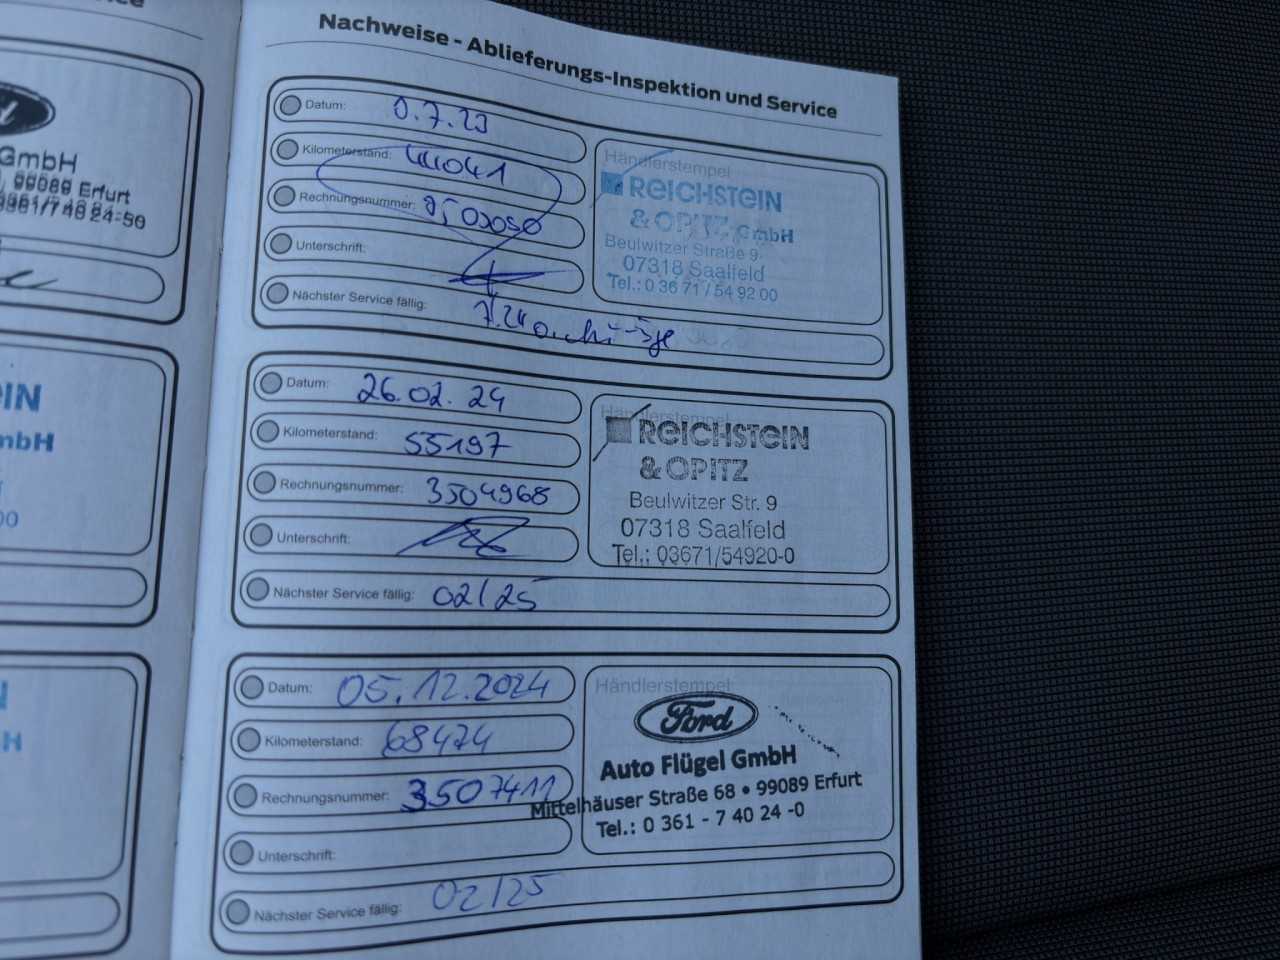 GmbH
99089 Erfurt
IN
mbH
00
H
Nachweise - Ablieferungs-Inspektion und Service
Datum: 0.7.23
Kilometerstand: 44041
Rechnungsnummer:
Unterschrift:
Nächster Service fällig: 7.24
Händlerstempel
REICHSTEIN
& OPITZ GmbH
Beulwitzer Straße 9
07318 Saalfeld
Tel.: 0 36 71 / 54 92 00
Datum: 26.02.24
Kilometerstand: 55197
Rechnungsnummer: 3504968
Unterschrift:
Nächster Service fällig: 02/25
Händlerstempel
REICHSTEIN
& OPITZ
Beulwitzer Str. 9
07318 Saalfeld
Tel.: 03671/54920-0
Datum: 05.12.2024
Kilometerstand: 68474
Rechnungsnummer: 3507411
Unterschrift:
Nächster Service fällig: 02/25
Händlerstempel:
Ford
Auto Flügel GmbH
Mittelhäuser Straße 68 • 99089 Erfurt
Tel.: 0 361 - 7 40 24 -0